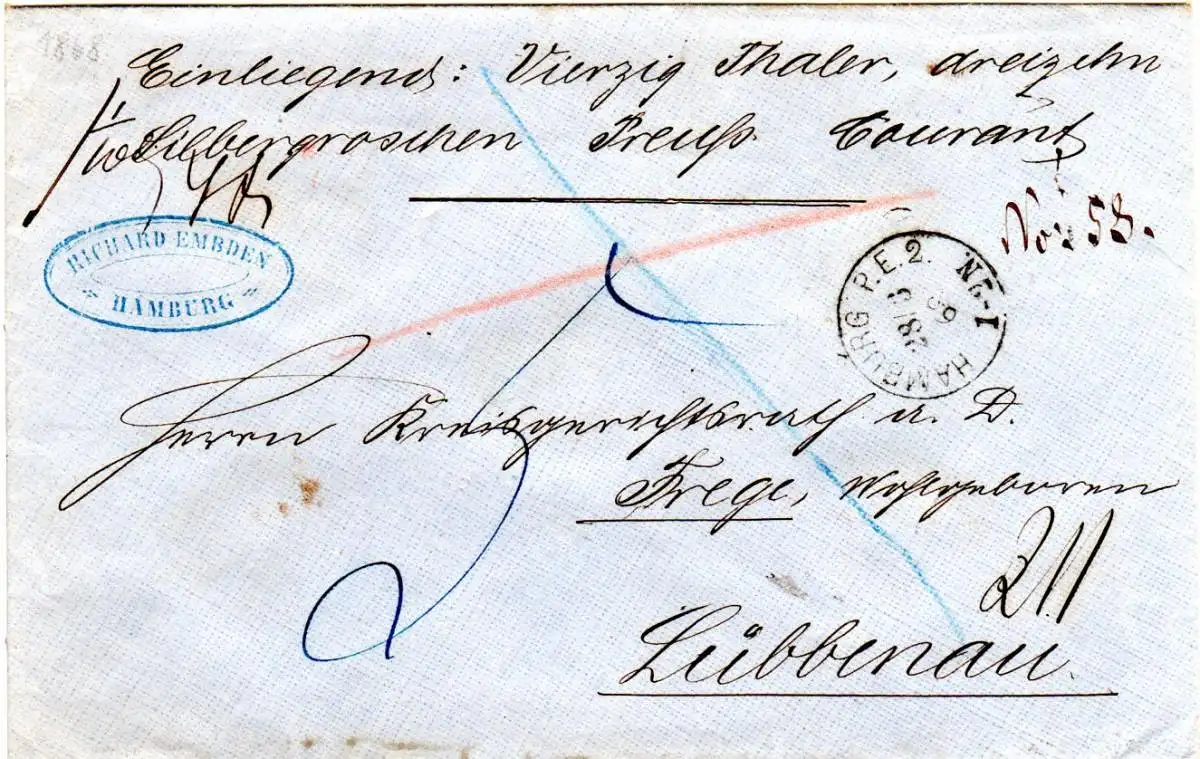 1868
Einliegend: Vierzig Thaler, dreizehn
Silbergroschen Preuß. Courant
RICHARD EMBDEN
HAMBURG
No: 58.
HAMBURG P.E.2. N5-1
28/3
68
Herrn Kreisgerichtsrath a. D.
Frege, Wohlgeboren
Lübbenau.